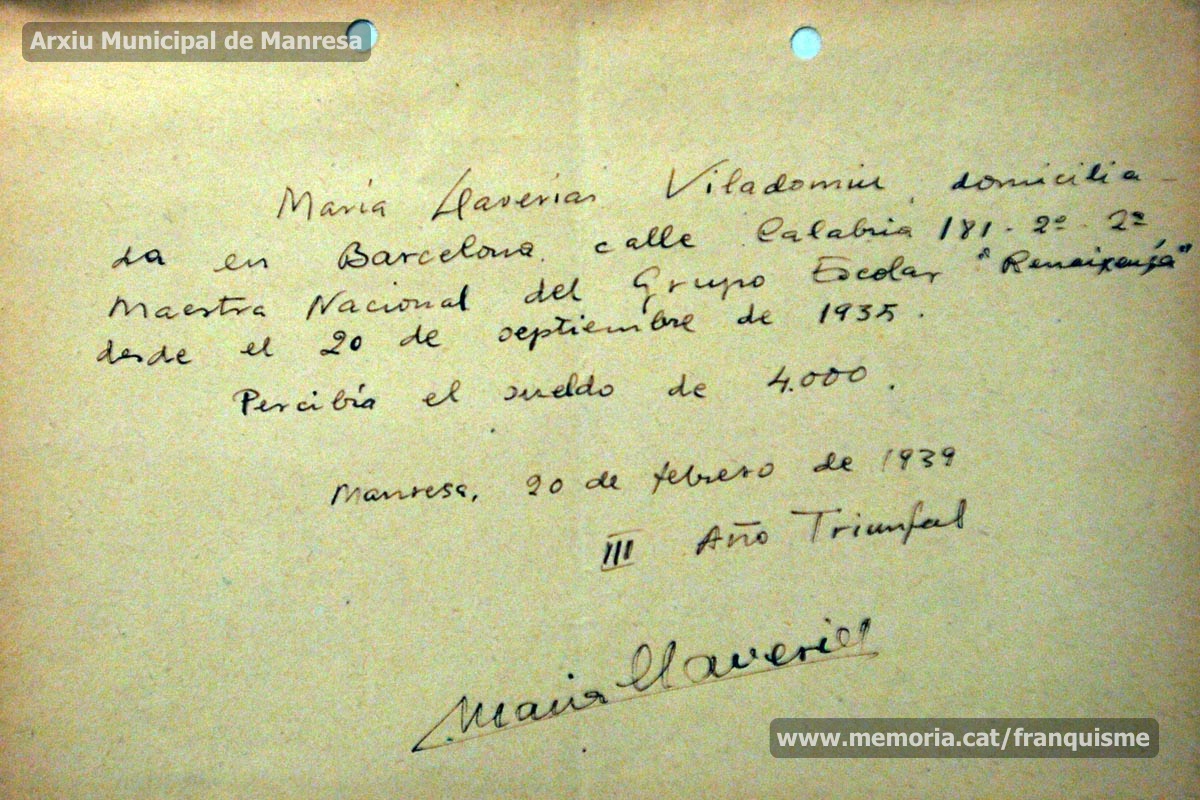 Arxiu Municipal de Manresa
María Llaverias Viladomiu, domicilia-
da en Barcelona, calle Calabria 181-2º-2ª
Maestra Nacional del Grupo Escolar "Renaixença"
desde el 20 de septiembre de 1935.
Percibía el sueldo de 4.000.
Manresa, 20 de febrero de 1939
III Año Triunfal
Maria Llaverias
www.memoria.cat/franquisme